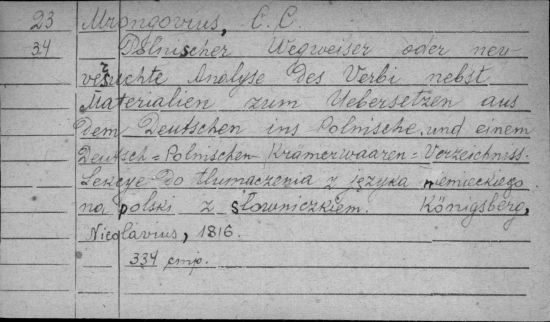 23 Mrongovius, C. C.
34 Polnischer Wegweiser oder neu-
versuchte Analyse des Verbi nebst
Materialien zum Uebersetzen aus
dem Deutschen ins Polnische und einem
Deutsch=Polnischen Krämerwaaren=Verzeichniss.
Lekcye do tłumaczenia z języka niemieckiego
na polski z słowniczkiem. Königsberg,
Nicolavius, 1816.
334 стр.